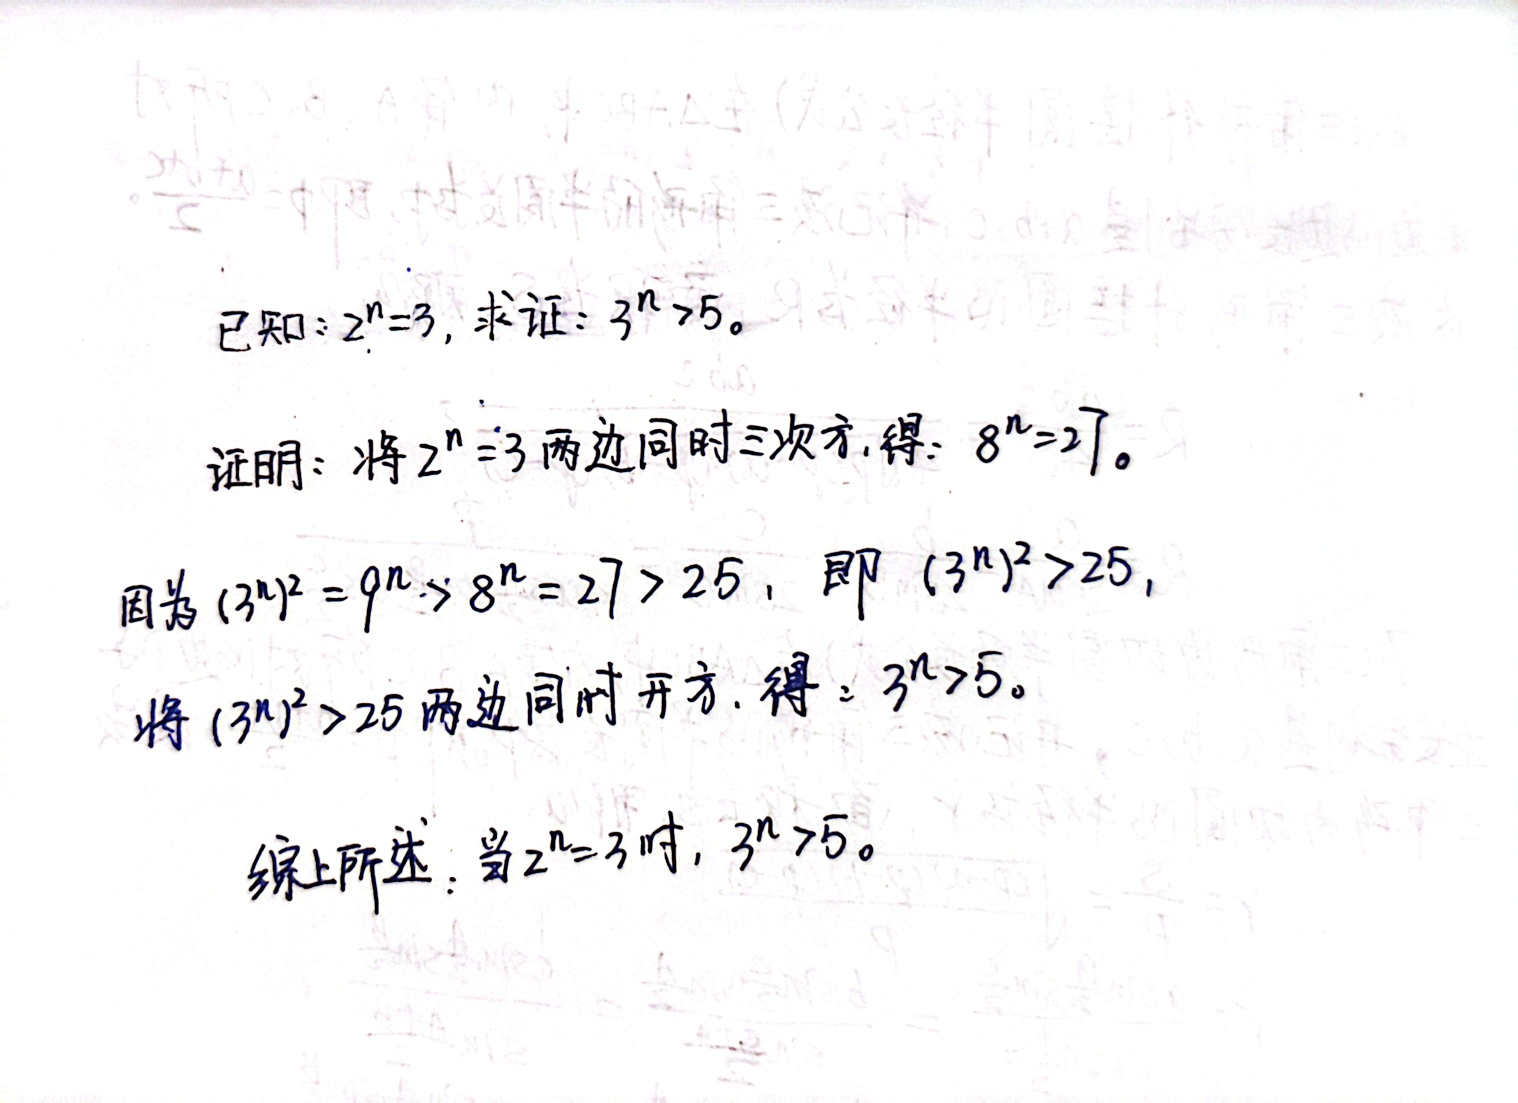 已知：2ⁿ=3，求证：3ⁿ>5。
证明：将2ⁿ=3两边同时三次方，得：8ⁿ=27。
因为(3ⁿ)²=9ⁿ>8ⁿ=27>25，即(3ⁿ)²>25，
将(3ⁿ)²>25两边同时开方，得：3ⁿ>5。
综上所述：当2ⁿ=3时，3ⁿ>5。